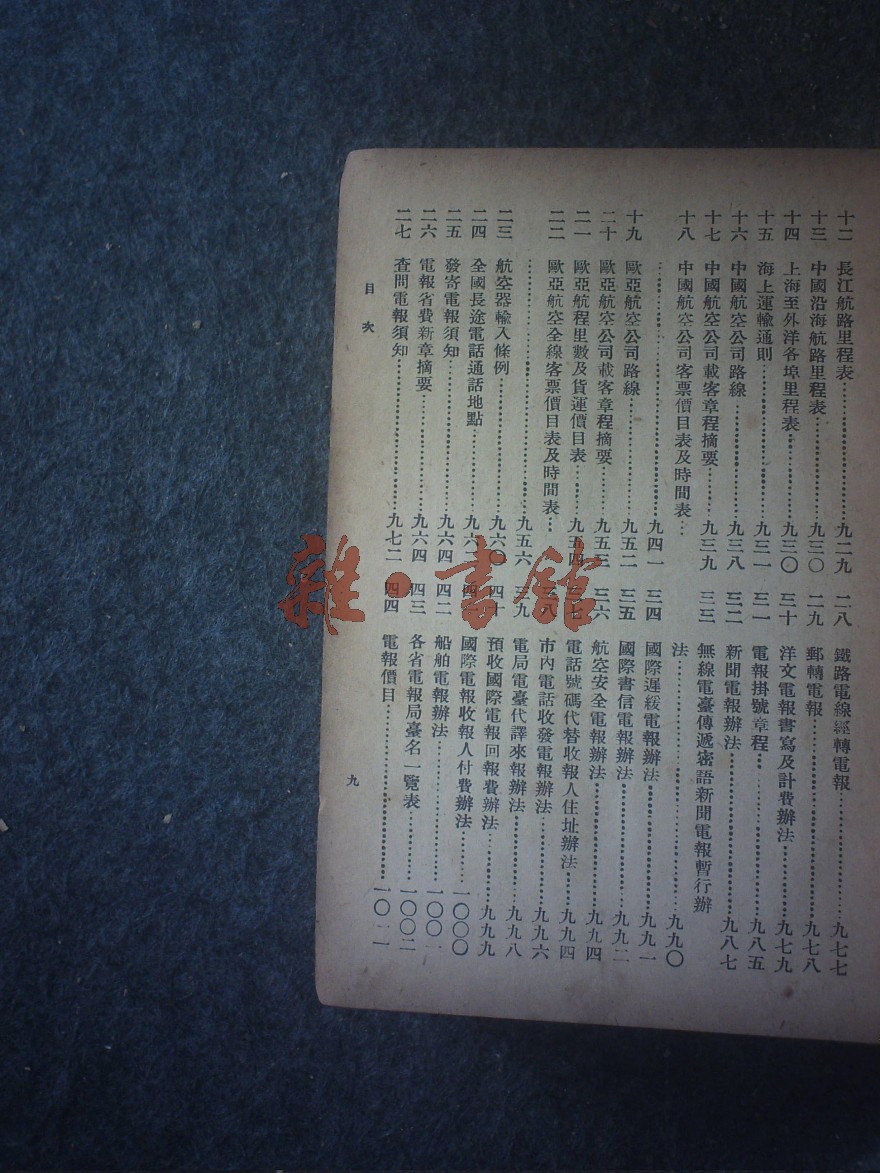 十二 長江航路里程表……九二九
十三 中國沿海航路里程表……九三〇
十四 上海至外洋各埠里程表……九三〇
十五 海上運輸通則……九三一
十六 中國航空公司路線……九三八
十七 中國航空公司載客章程摘要……九三九
十八 中國航空公司客票價目表及時間表…
……九四一
十九 歐亞航空公司路線……九五二
二十 歐亞航空公司載客章程摘要……九五三
二一 歐亞航程里數及貨運價目表……九五四
二二 歐亞航空全線客票價目表及時間表…
……九五六
二三 航空器輸入條例……九六〇
二四 全國長途電話通話地點……九六二
二五 發寄電報須知……九六四
二六 電報省費新章摘要……九六四
二七 查問電報須知……九七二
二八 鐵路電線經轉電報……九七七
二九 郵轉電報……九七八
三十 洋文電報書寫及計費辦法……九七九
三一 電報掛號章程……九八五
三二 新聞電報辦法……九八七
三三 無線電臺傳遞密語新聞電報暫行辦
法……九九〇
三四 國際遲緩電報辦法……九九一
三五 國際書信電報辦法……九九二
三六 航空安全電報辦法……九九四
三七 電話號碼代替收報人住址辦法……九九四
三八 市內電話收發電報辦法……九九六
三九 電局電臺代譯來報辦法……九九八
四十 預收國際電報回報費辦法……九九九
國際電報收報人付費辦法……一〇〇〇
四二 船舶電報辦法……一〇〇一
四三 各省電報局臺名一覽表……一〇〇二
四四 電報價目……
目次
九
雜·書館